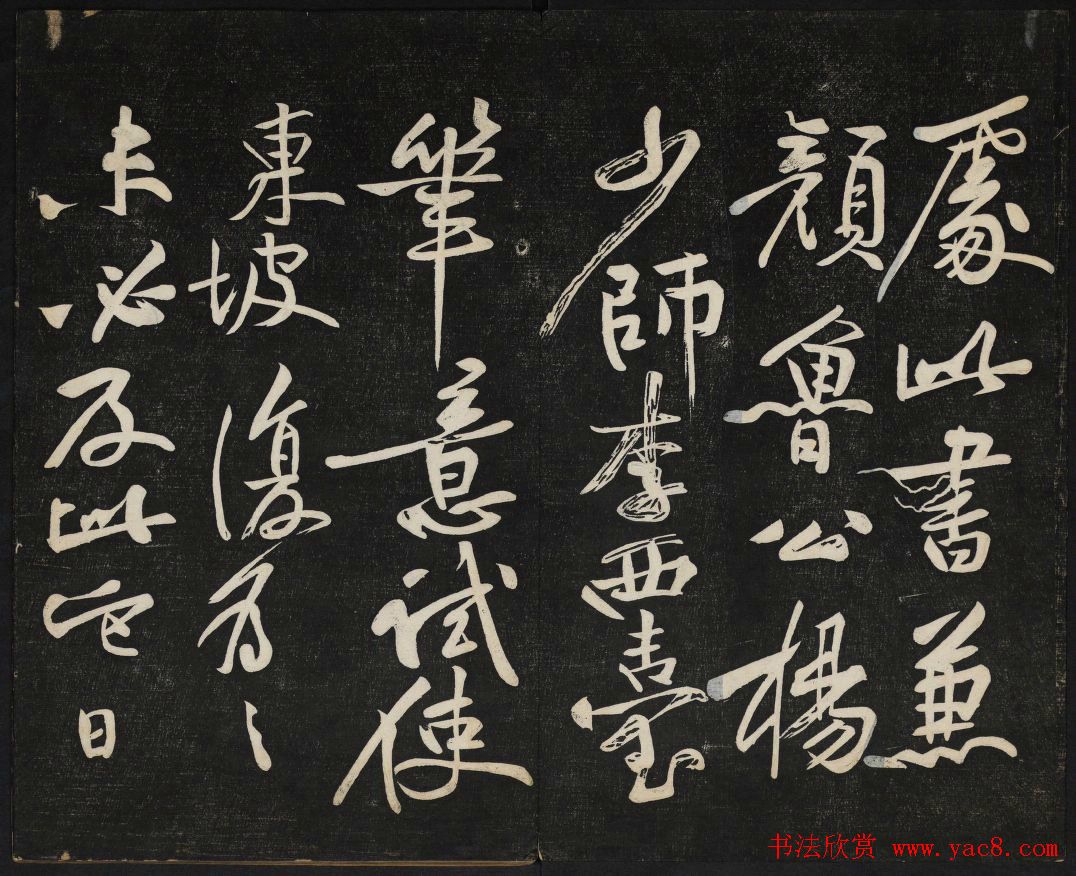 處此書兼
顏魯公楊
少師李西臺
筆意試使
東坡復為之
未必及此它日
书法欣赏 www.yac8.com